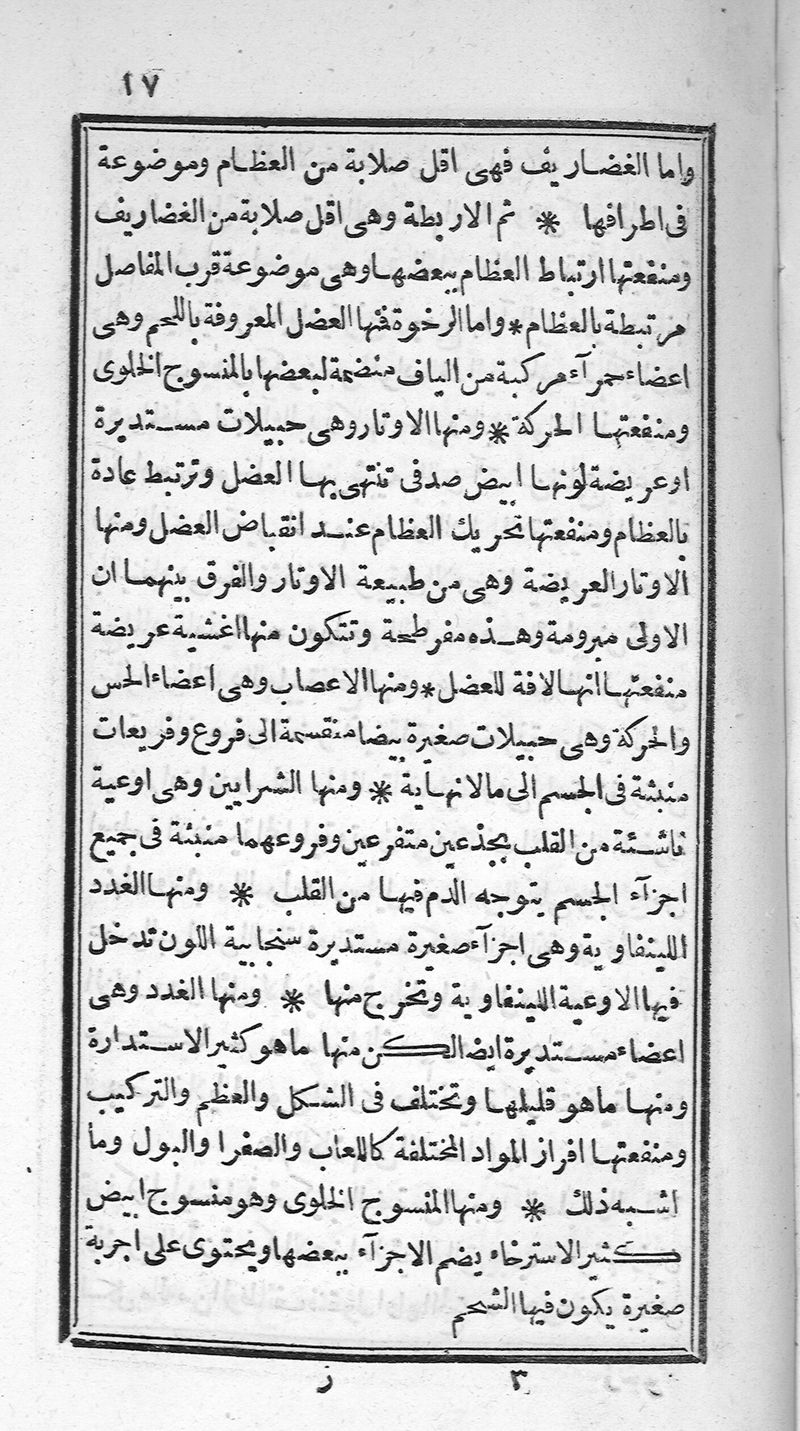 ١٧
واما الغضاريف فهى اقل صلابة من العظام وموضوعة
فى اطرافها * ثم الاربطة وهى اقل صلابة من الغضاريف
ومنفعتها ارتباط العظام ببعضها وهى موضوعة قرب المفاصل
مرتبطة بالعظام * واما الرخوة فمنها العضل المعروفة باللحم وهى
اعضاء حمرآء مركبة من الياف منضمة لبعضها بالمنسوج الخلوى
ومنفعتها الحركة * ومنها الاوتار وهى حبيلات مستديرة
اوعريضة لونها ابيض صدفى تنتهى بها العضل وترتبط عادة
بالعظام ومنفعتها تحريك العظام عند انقباض العضل ومنها
الاوتار العريضة وهى من طبيعة الاوتار والفرق بينهما ان
الاولى مبرومة وهذه مفرطحة وتتكون منها اغشية عريضة
منفعتها انها لافة للعضل * ومنها الاعصاب وهى اعضاء الحس
والحركة وهى حبيلات صغيرة بيضا منقسمة الى فروع وفريعات
منبثة فى الجسم الى مالانهاية * ومنها الشرايين وهى اوعية
ناشئة من القلب بجذعين متفرعين وفروعهما منبثة فى جميع
اجزآء الجسم يتوجه الدم فيها من القلب * ومنها الغدد
اللينفاوية وهى اجزآء صغيرة مستديرة سنجابية اللون تدخل
فيها الاوعية اللينفاوية وتخرج منها * ومنها الغدد وهى
اعضاء مستديرة ايضا لكن منها ماهو كثير الاستدارة
ومنها ماهو قليلها وتختلف فى الشكل والعظم والتركيب
ومنفعتها افراز المواد المختلفة كاللعاب والصفرا والبول وما
اشبه ذلك * ومنها المنسوج الخلوى وهو منسوج ابيض
كثير الاسترخاء يضم الاجزآء ببعضها ويحتوى على اجربة
صغيرة يكون فيها الشحم
٣ ز